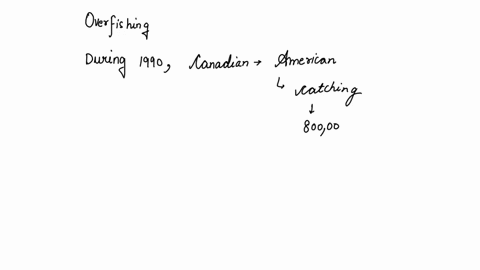 Overfishing
During 1990, Canadian → American
↳ catching
↓
800,00